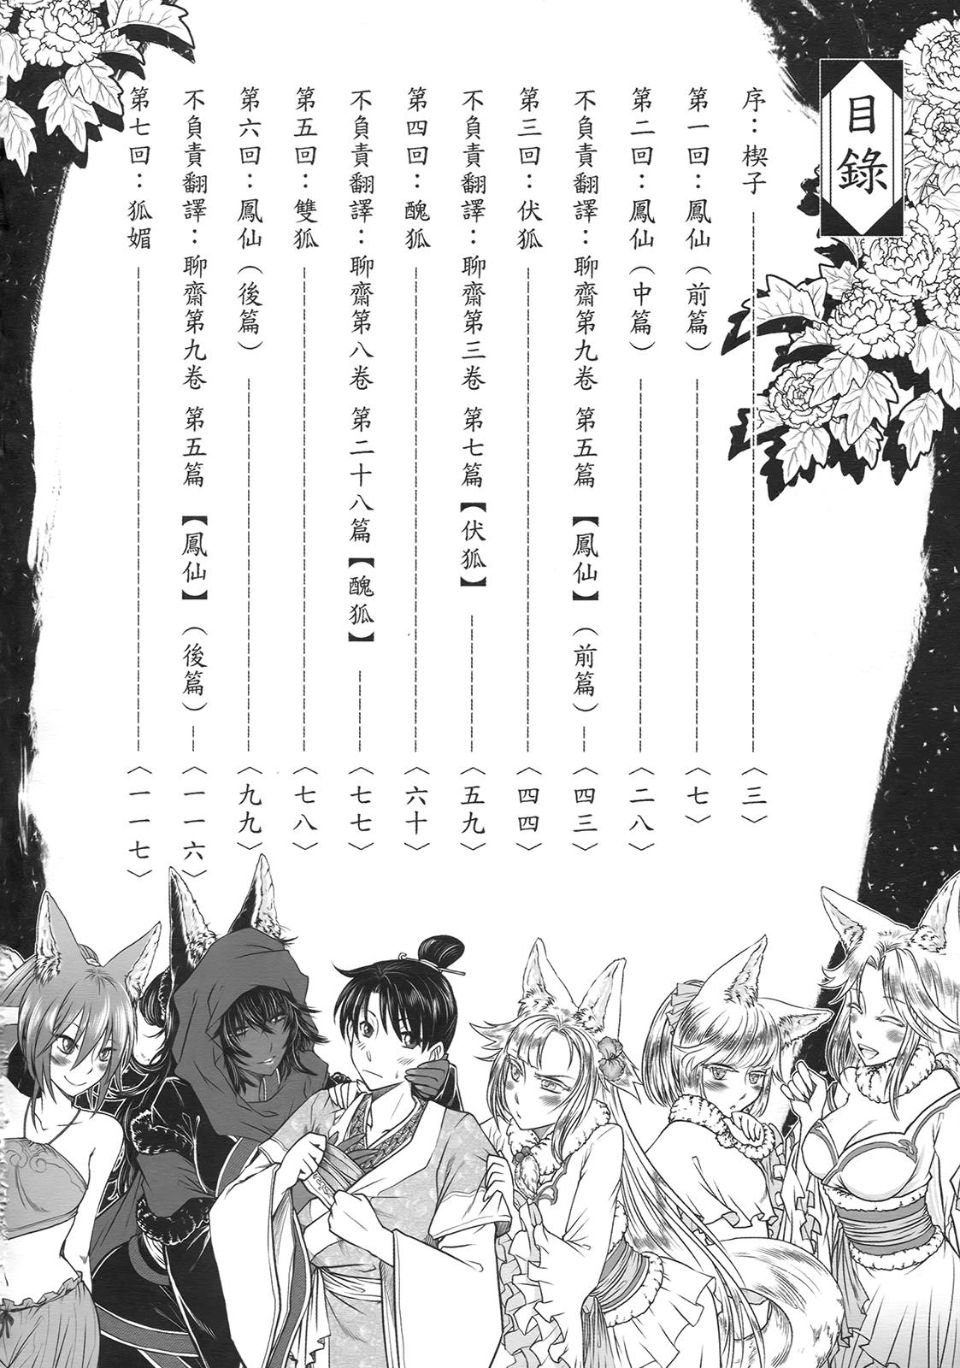 目錄
序：楔子 〈三〉
第一回：鳳仙（前篇） 〈七〉
第二回：鳳仙（中篇） 〈二八〉
不負責翻譯：聊齋第九卷 第五篇【鳳仙】（前篇） 〈四三〉
第三回：伏狐 〈四四〉
不負責翻譯：聊齋第三卷 第七篇【伏狐】 〈五九〉
第四回：醜狐 〈六十〉
不負責翻譯：聊齋第八卷 第二十八篇【醜狐】 〈七七〉
第五回：雙狐 〈七八〉
第六回：鳳仙（後篇） 〈九九〉
不負責翻譯：聊齋第九卷 第五篇【鳳仙】（後篇） 〈一一六〉
第七回：狐媚 〈一一七〉